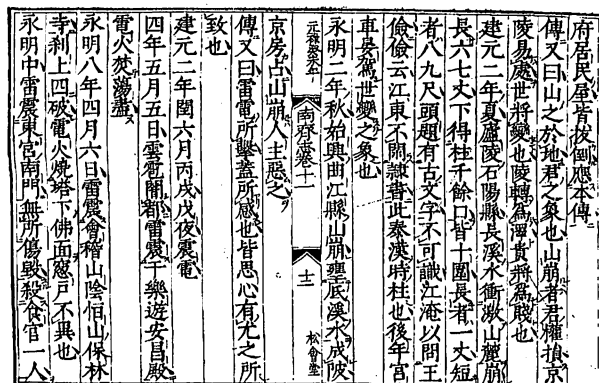 府居民屋皆拔倒應本傳
傳又曰山之於地君之象也山崩者君權損京
陵易處世將變也陵轉爲澤貴將爲賤也
建元二年夏廬陵石陽縣長溪水衝激山麓崩
長六七丈下得柱千餘口皆十圍長者一丈短
者八九尺頭題有古文字不可識江淹以問王
儉儉云江東不閑隸書此秦漢時柱也後年宮
車晏駕世變之象也
永明二年秋始興曲江縣山崩壅底溪水成陂
京房占山崩人主惡之
傳又曰雷電所擊蓋所感也皆思心有尤之所
致也
建元二年閏六月丙戌戊夜震電
四年五月五日雲雹闇都雷震于樂遊安昌殿
電火焚蕩盡
永明八年四月六日雷震會稽山陰恒山保林
寺刹上四破電火燒塔下佛面窻戶不異也
永明中雷震東宮南門無所傷毀殺食官一人
南齊志卷十一
十二
松會堂